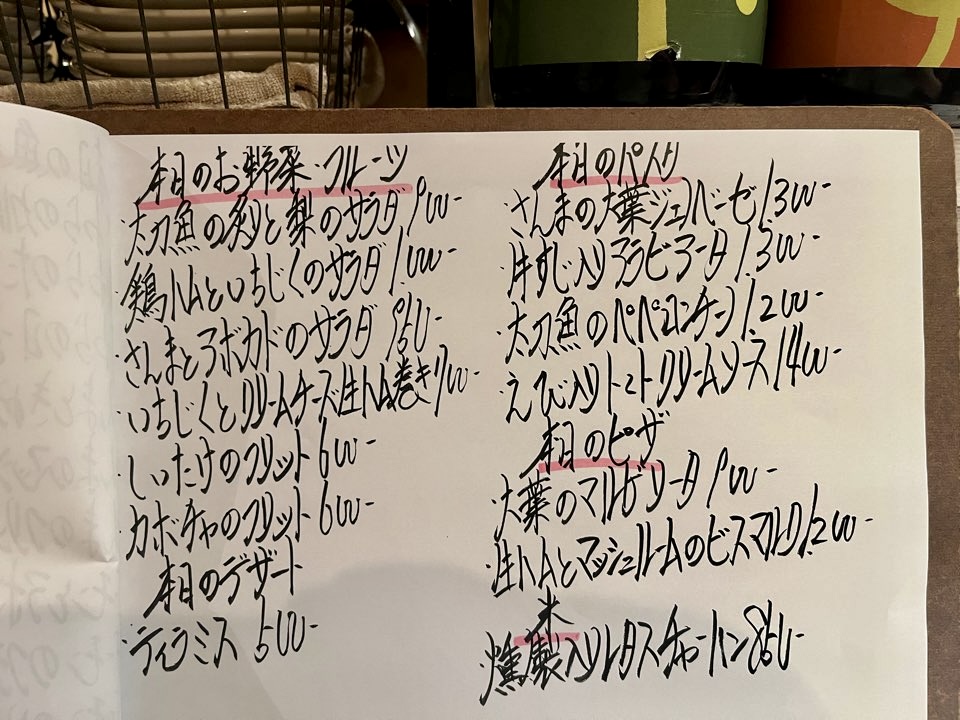 本日のお野菜・フルーツ
・太刀魚の炙と梨のサラダ 900-
・鶏ハムといちじくのサラダ 1.000-
・さんまとアボカドのサラダ 950-
・いちじくとクリームチーズ生ハム巻き 700-
・しいたけのフリット 600-
・カボチャのフリット 600-
本日のデザート
・ティラミス 500-
本日のパスタ
・さんまの大葉ジェノベーゼ 1.300-
・牛すじ入りアラビアータ 1.300-
・太刀魚のペペロンチーノ 1.200-
・えび入りトマトクリームソース 1400-
本日のピザ
・大葉のマルゲリータ 900-
・生ハムとマッシュルームのビスマルク 1.200-
米
・燻製入りレタスチャーハン 850-